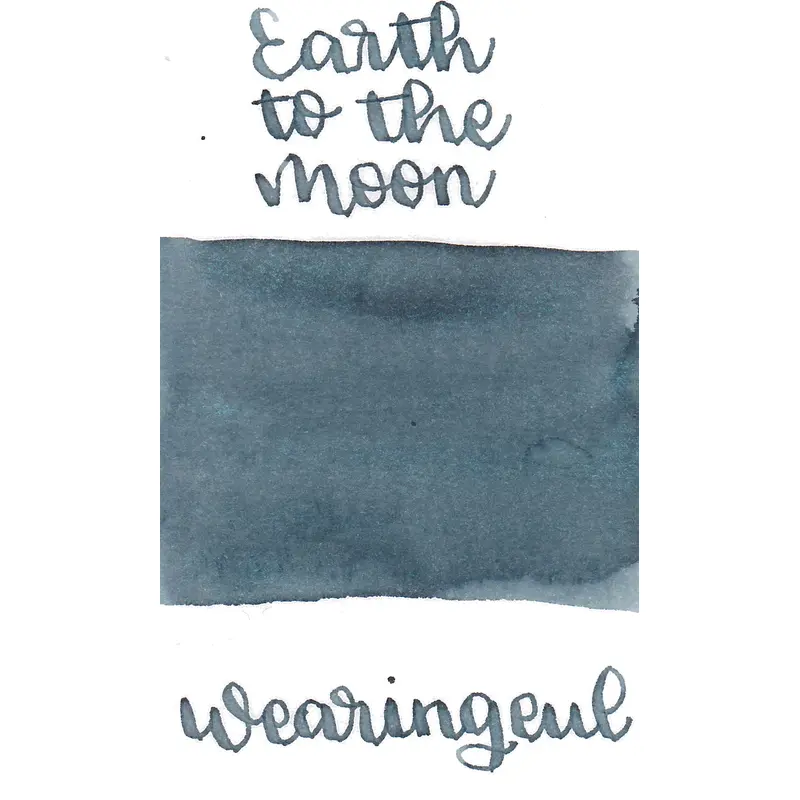 Earth
to the
moon
wearingeul